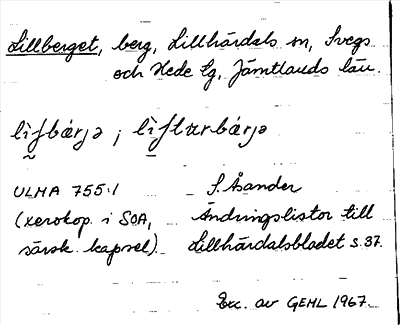 Lillberget, berg, Lillhärdals sn, Svegs
och Hede tg, Jämtlands län.
lìʃbárjə ; lìʃlurbárjə
ULMA 755:1 S. Åsander
(xerokop. i SOA, Ändringslistor till
särsk. kapsel). Lillhärdalsbladet s. 37.
Exc. av GEHL 1967.